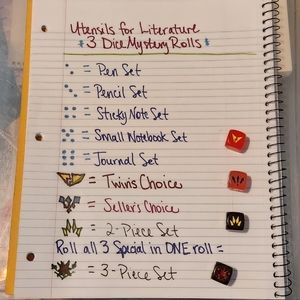 Utensils for Literature
3 Dice Mystery Rolls
= Pen Set
= Pencil Set
= Sticky Note Set
= Small Notebook Set
= Journal Set
= Twin's Choice
= Seller's Choice
= 2-Piece Set
Roll all 3 Special in ONE roll =
= 3-Piece Set